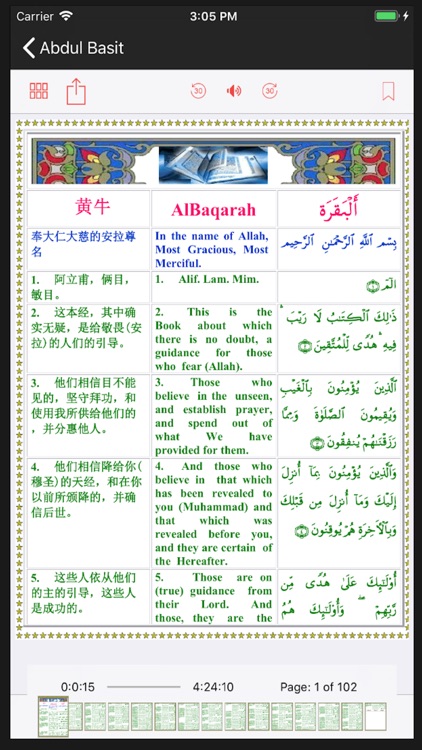 Carrier 3:05 PM
Abdul Basit
30 30
黄牛
AlBaqarah
أَلْبَقَرَة
奉大仁大慈的安拉尊
名
In the name of Allah,
Most Gracious, Most
Merciful.
بِسْمِ ٱللَّهِ ٱلرَّحْمَٰنِ ٱلرَّحِيمِ
1. 阿立甫,俩目,
敏目。
1. Alif. Lam. Mim.
الٓمٓ
2. 这本经,其中确
实无疑,是给敬畏(安
拉)的人们的引导。
2. This is the
Book about which
there is no doubt, a
guidance for those
who fear (Allah).
ذَٰلِكَ ٱلْكِتَٰبُ لَا رَيْبَ ۛ
فِيهِ ۛ هُدًى لِّلْمُتَّقِينَ
3. 他们相信目不能
见的,坚守拜功,和
使用我所供给他们的
,并分惠他人。
3. Those who
believe in the unseen,
and establish prayer,
and spend out of
what We have
provided for them.
ٱلَّذِينَ يُؤْمِنُونَ بِٱلْغَيْبِ
وَيُقِيمُونَ ٱلصَّلَوٰةَ وَمِمَّا
رَزَقْنَٰهُمْ يُنفِقُونَ
4. 他们相信降给你(
穆圣)的天经,和在你
以前所颁降的,并确
信后世。
4. And those who
believe in that which
has been revealed to
you (Muhammad) and
that which was
revealed before you,
and they are certain of
the Hereafter.
وَٱلَّذِينَ يُؤْمِنُونَ بِمَآ أُنزِلَ
إِلَيْكَ وَمَآ أُنزِلَ مِن قَبْلِكَ
وَبِٱلْءَاخِرَةِ هُمْ يُوقِنُونَ
5. 这些人依从他们
的主的引导,这些人
是成功的。
5. Those are on
(true) guidance from
their Lord. And
those, they are the
أُو۟لَٰٓئِكَ عَلَىٰ هُدًى مِّن
رَّبِّهِمْ ۖ وَأُو۟لَٰٓئِكَ هُمُ
0:0:15 4:24:10 Page: 1 of 102